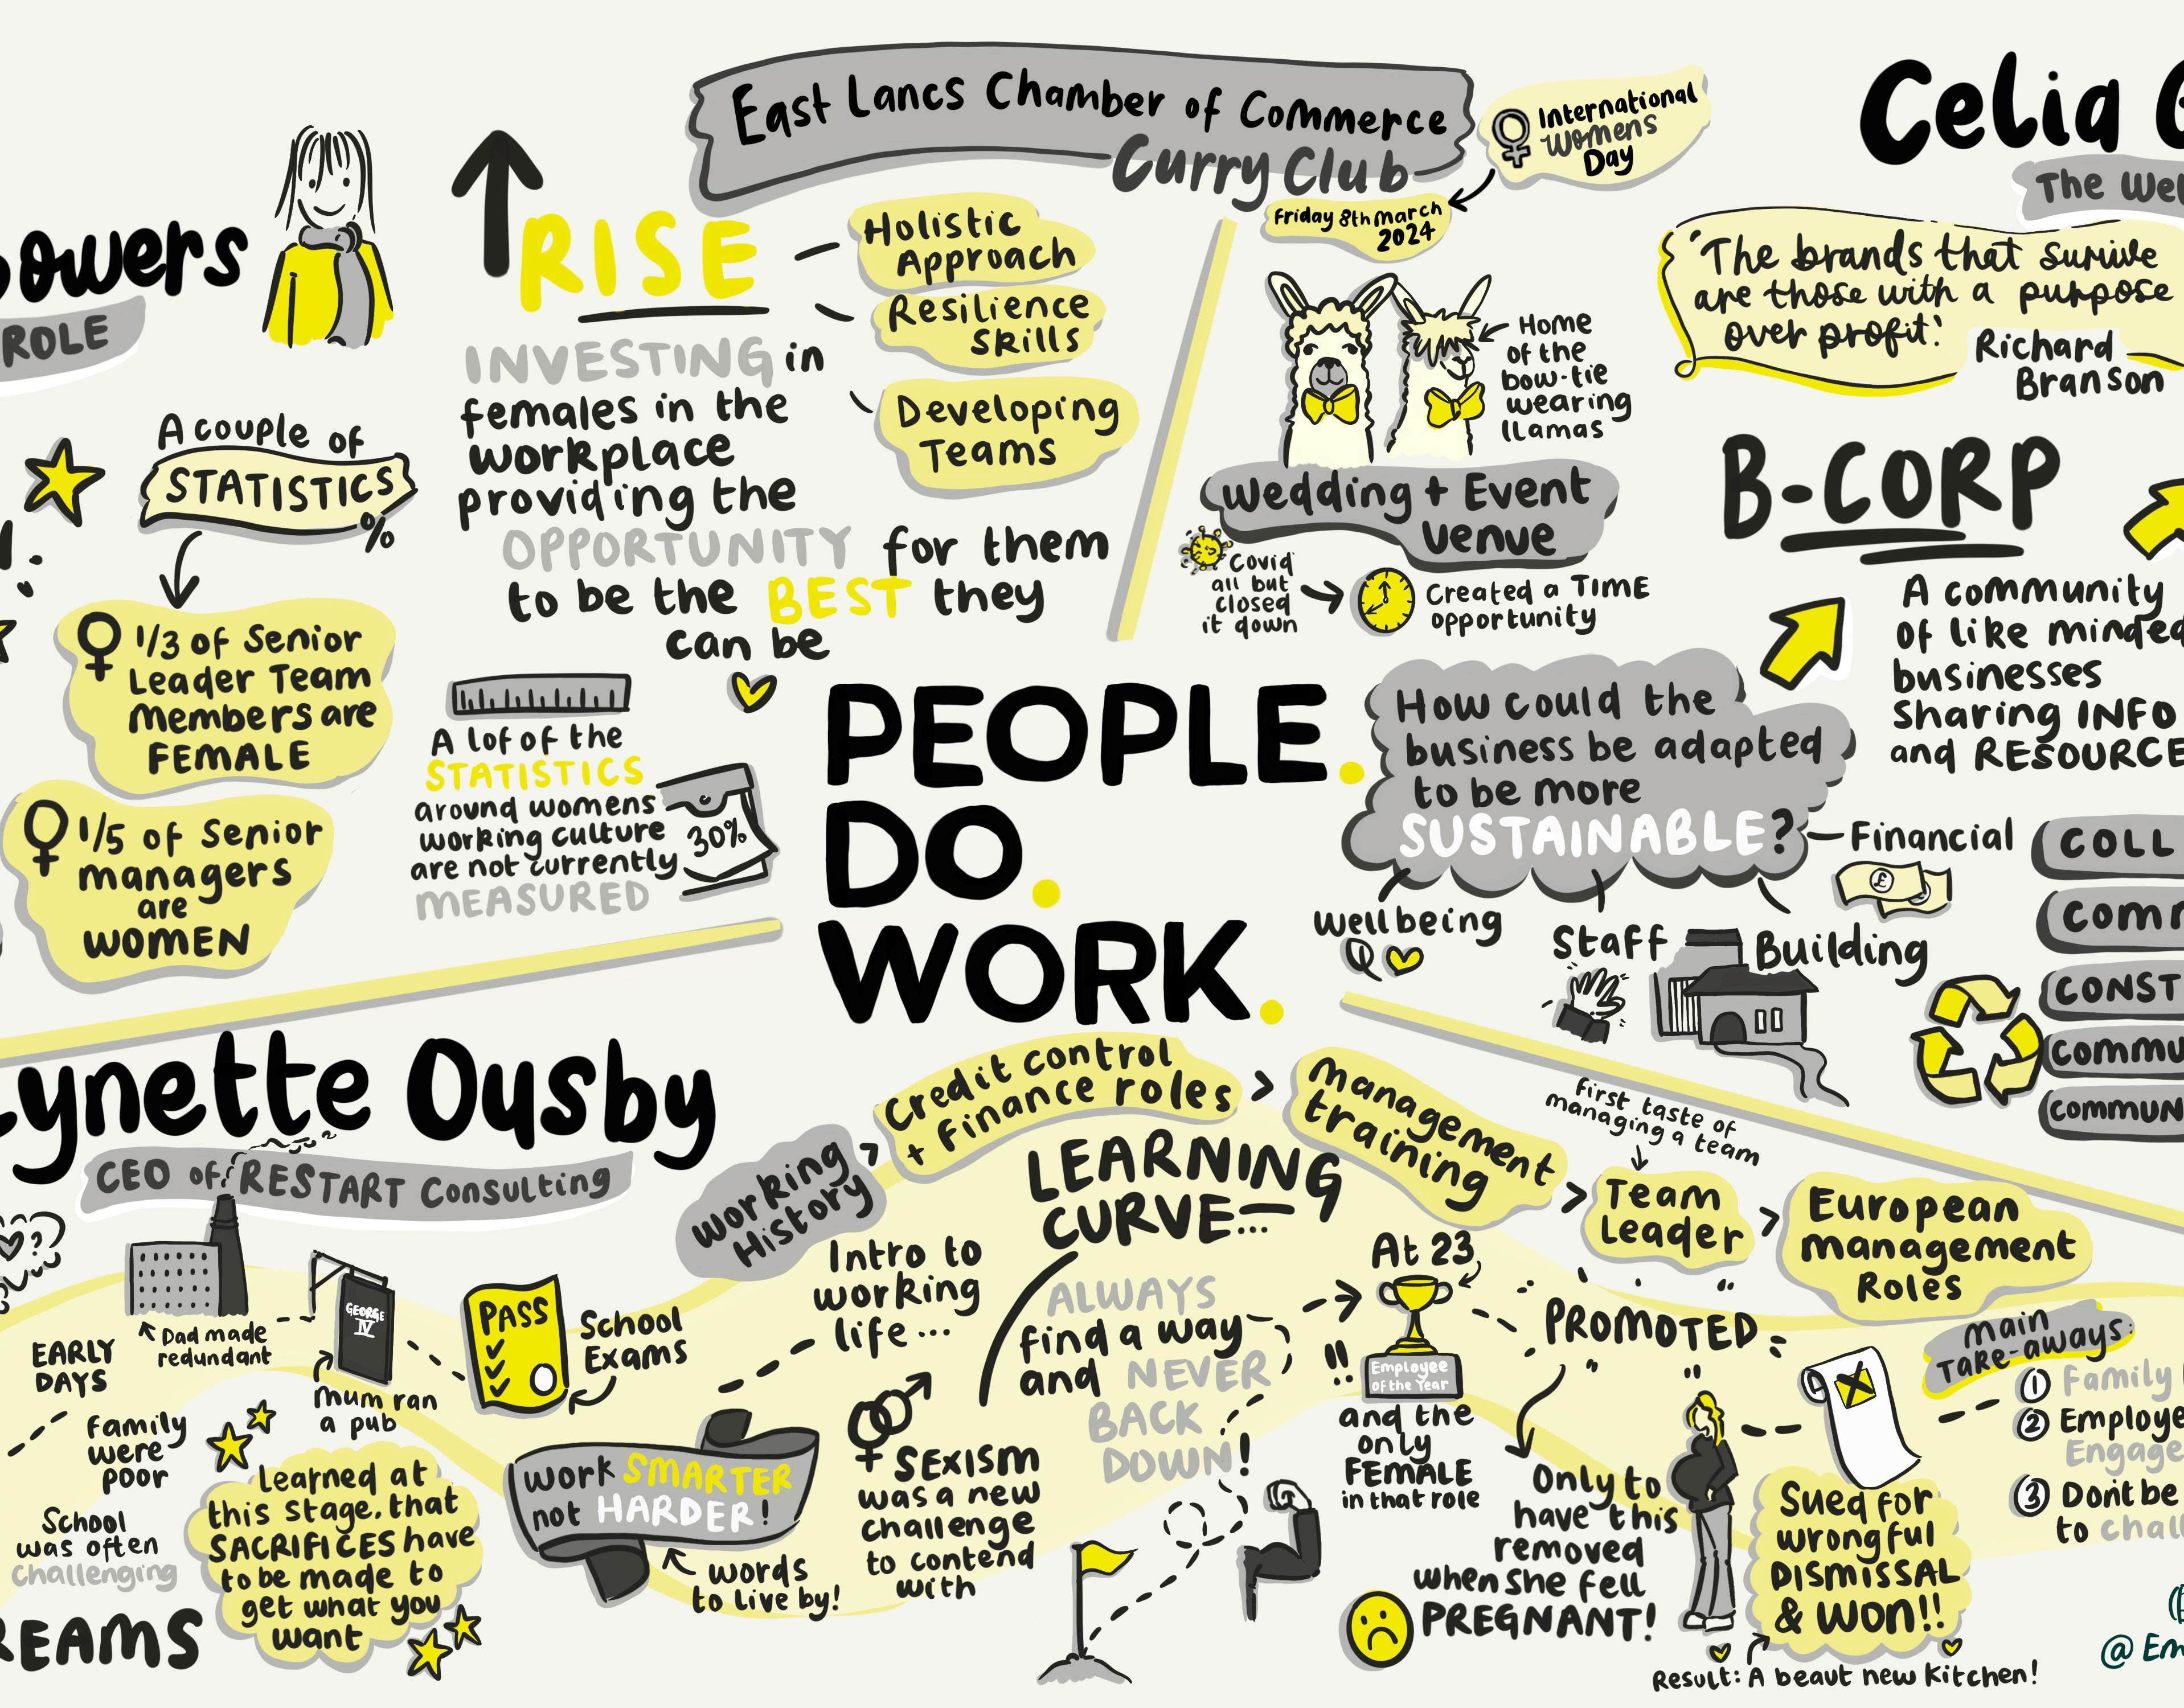 East Lancs Chamber of Commerce
Curry Club
International
Womens
Day
Friday 8th March
2024
owers
ROLE
A couple of
STATISTICS
%
1/3 of Senior
Leader Team
members are
FEMALE
1/5 of Senior
managers
are
WOMEN
RISE
INVESTING in
females in the
workplace
providing the
OPPORTUNITY for them
to be the BEST they
can be
Holistic
Approach
Resilience
Skills
Developing
Teams
A lof of the
STATISTICS
around womens
working culture
are not currently
MEASURED
30%
PEOPLE.
DO.
WORK.
Home
of the
bow-tie
wearing
llamas
Wedding + Event
Venue
Covid
all but
closed
it down
Created a TIME
opportunity
How could the
business be adapted
to be more
SUSTAINABLE?
Financial
£
Wellbeing
Staff
Building
Celia G
The Wel
"The brands that survive
are those with a purpose
over profit."
Richard
Branson
B-CORP
A community
of like minded
businesses
sharing INFO
and RESOURCE
COLL
COM
CONST
COMMU
COMMUN
Lynette Ousby
CEO of RESTART Consulting
?
EARLY
DAYS
Dad made
redundant
GEORGE
IV
Mum ran
a pub
Family
were
poor
School
was often
challenging
REAMS
Learned at
this stage, that
SACRIFICES have
to be made to
get what you
want
PASS
School
Exams
Work SMARTER
not HARDER!
words
to live by!
Working
History
> Credit control
+ Finance roles >
Management
training >
First taste of
managing a team
Team
Leader >
European
management
Roles
Intro to
working
life...
SEXISM
was a new
challenge
to contend
with
LEARNING
CURVE...
ALWAYS
find a way
and NEVER
BACK
DOWN!
At 23
!!
Employee
of the Year
and the
only
FEMALE
in that role
PROMOTED
Only to
have this
removed
when she fell
PREGNANT!
Sued for
wrongful
DISMISSAL
& WON!!
Result: A beaut new kitchen!
Main
TAKE-AWAYS:
1 Family
2 Employe
Engage
3 Don't be
to chall
@ Em